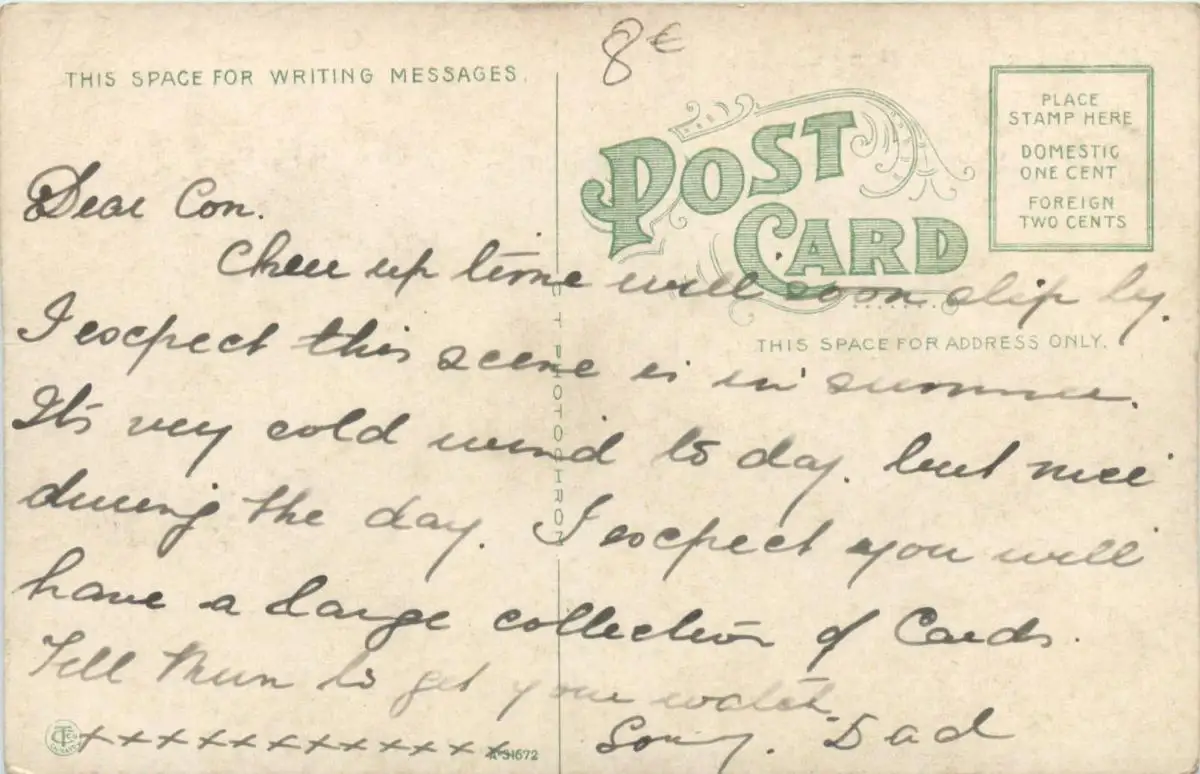 8€
THIS SPACE FOR WRITING MESSAGES.
POST
CARD
PLACE
STAMP HERE
DOMESTIC
ONE CENT
FOREIGN
TWO CENTS
THIS SPACE FOR ADDRESS ONLY.
Dear Con.
Cheer up time will soon slip by.
I expect this scene is in summer.
Its very cold wind to day. but nice
during the day. I expect you will
have a large collection of Cards.
Tell them to get your watch
xxxxxxxxxxxx Dad
A-31672